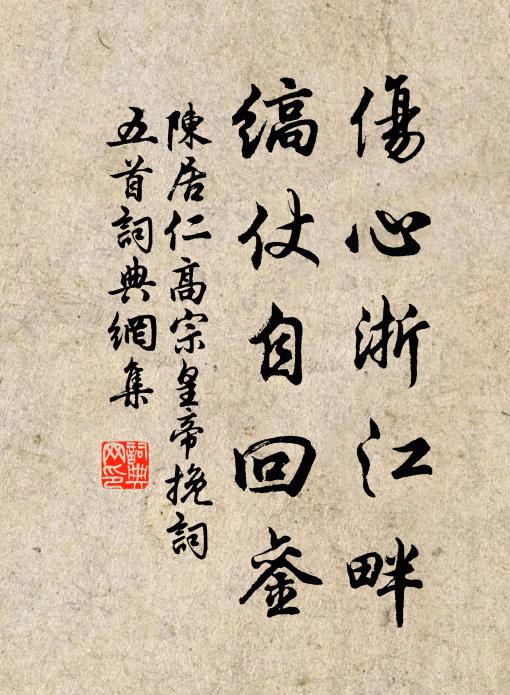 傷心浙江畔
縞仗自回銮
陳居仁高宗皇帝挽詞
五首詞典網集
詞典
网印